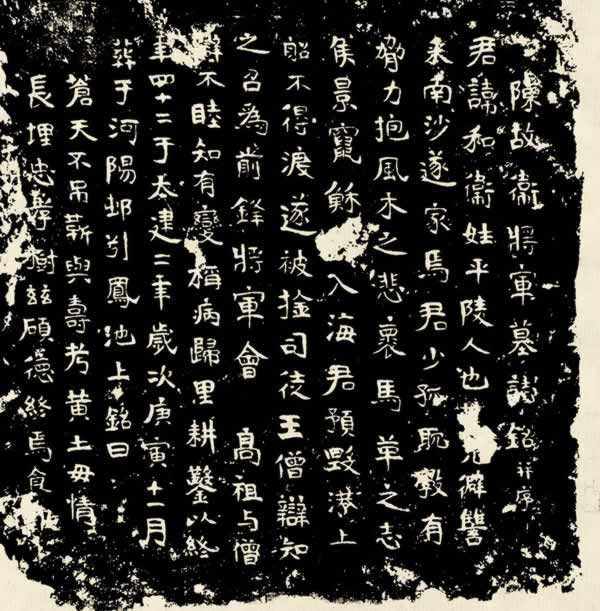 陳故衛將軍墓誌銘并序
君諱和衛姓平陵人也兄僻讐
來南沙遂家焉君少孤耽斅有
膂力抱風木之悲裹馬革之志
侯景竄穌入海君預毀港上
船不得渡遂被擒司徒王僧辯知
之召為前鋒將軍會 高祖与僧
辯不睦知有變稱病歸里耕鑿以終
年四十二于太建二年歲次庚寅十一月
葬于河陽邨引鳳池上銘曰
蒼天不弔靳與壽考黃土毋情
長埋忠孝樹兹碩德終焉食